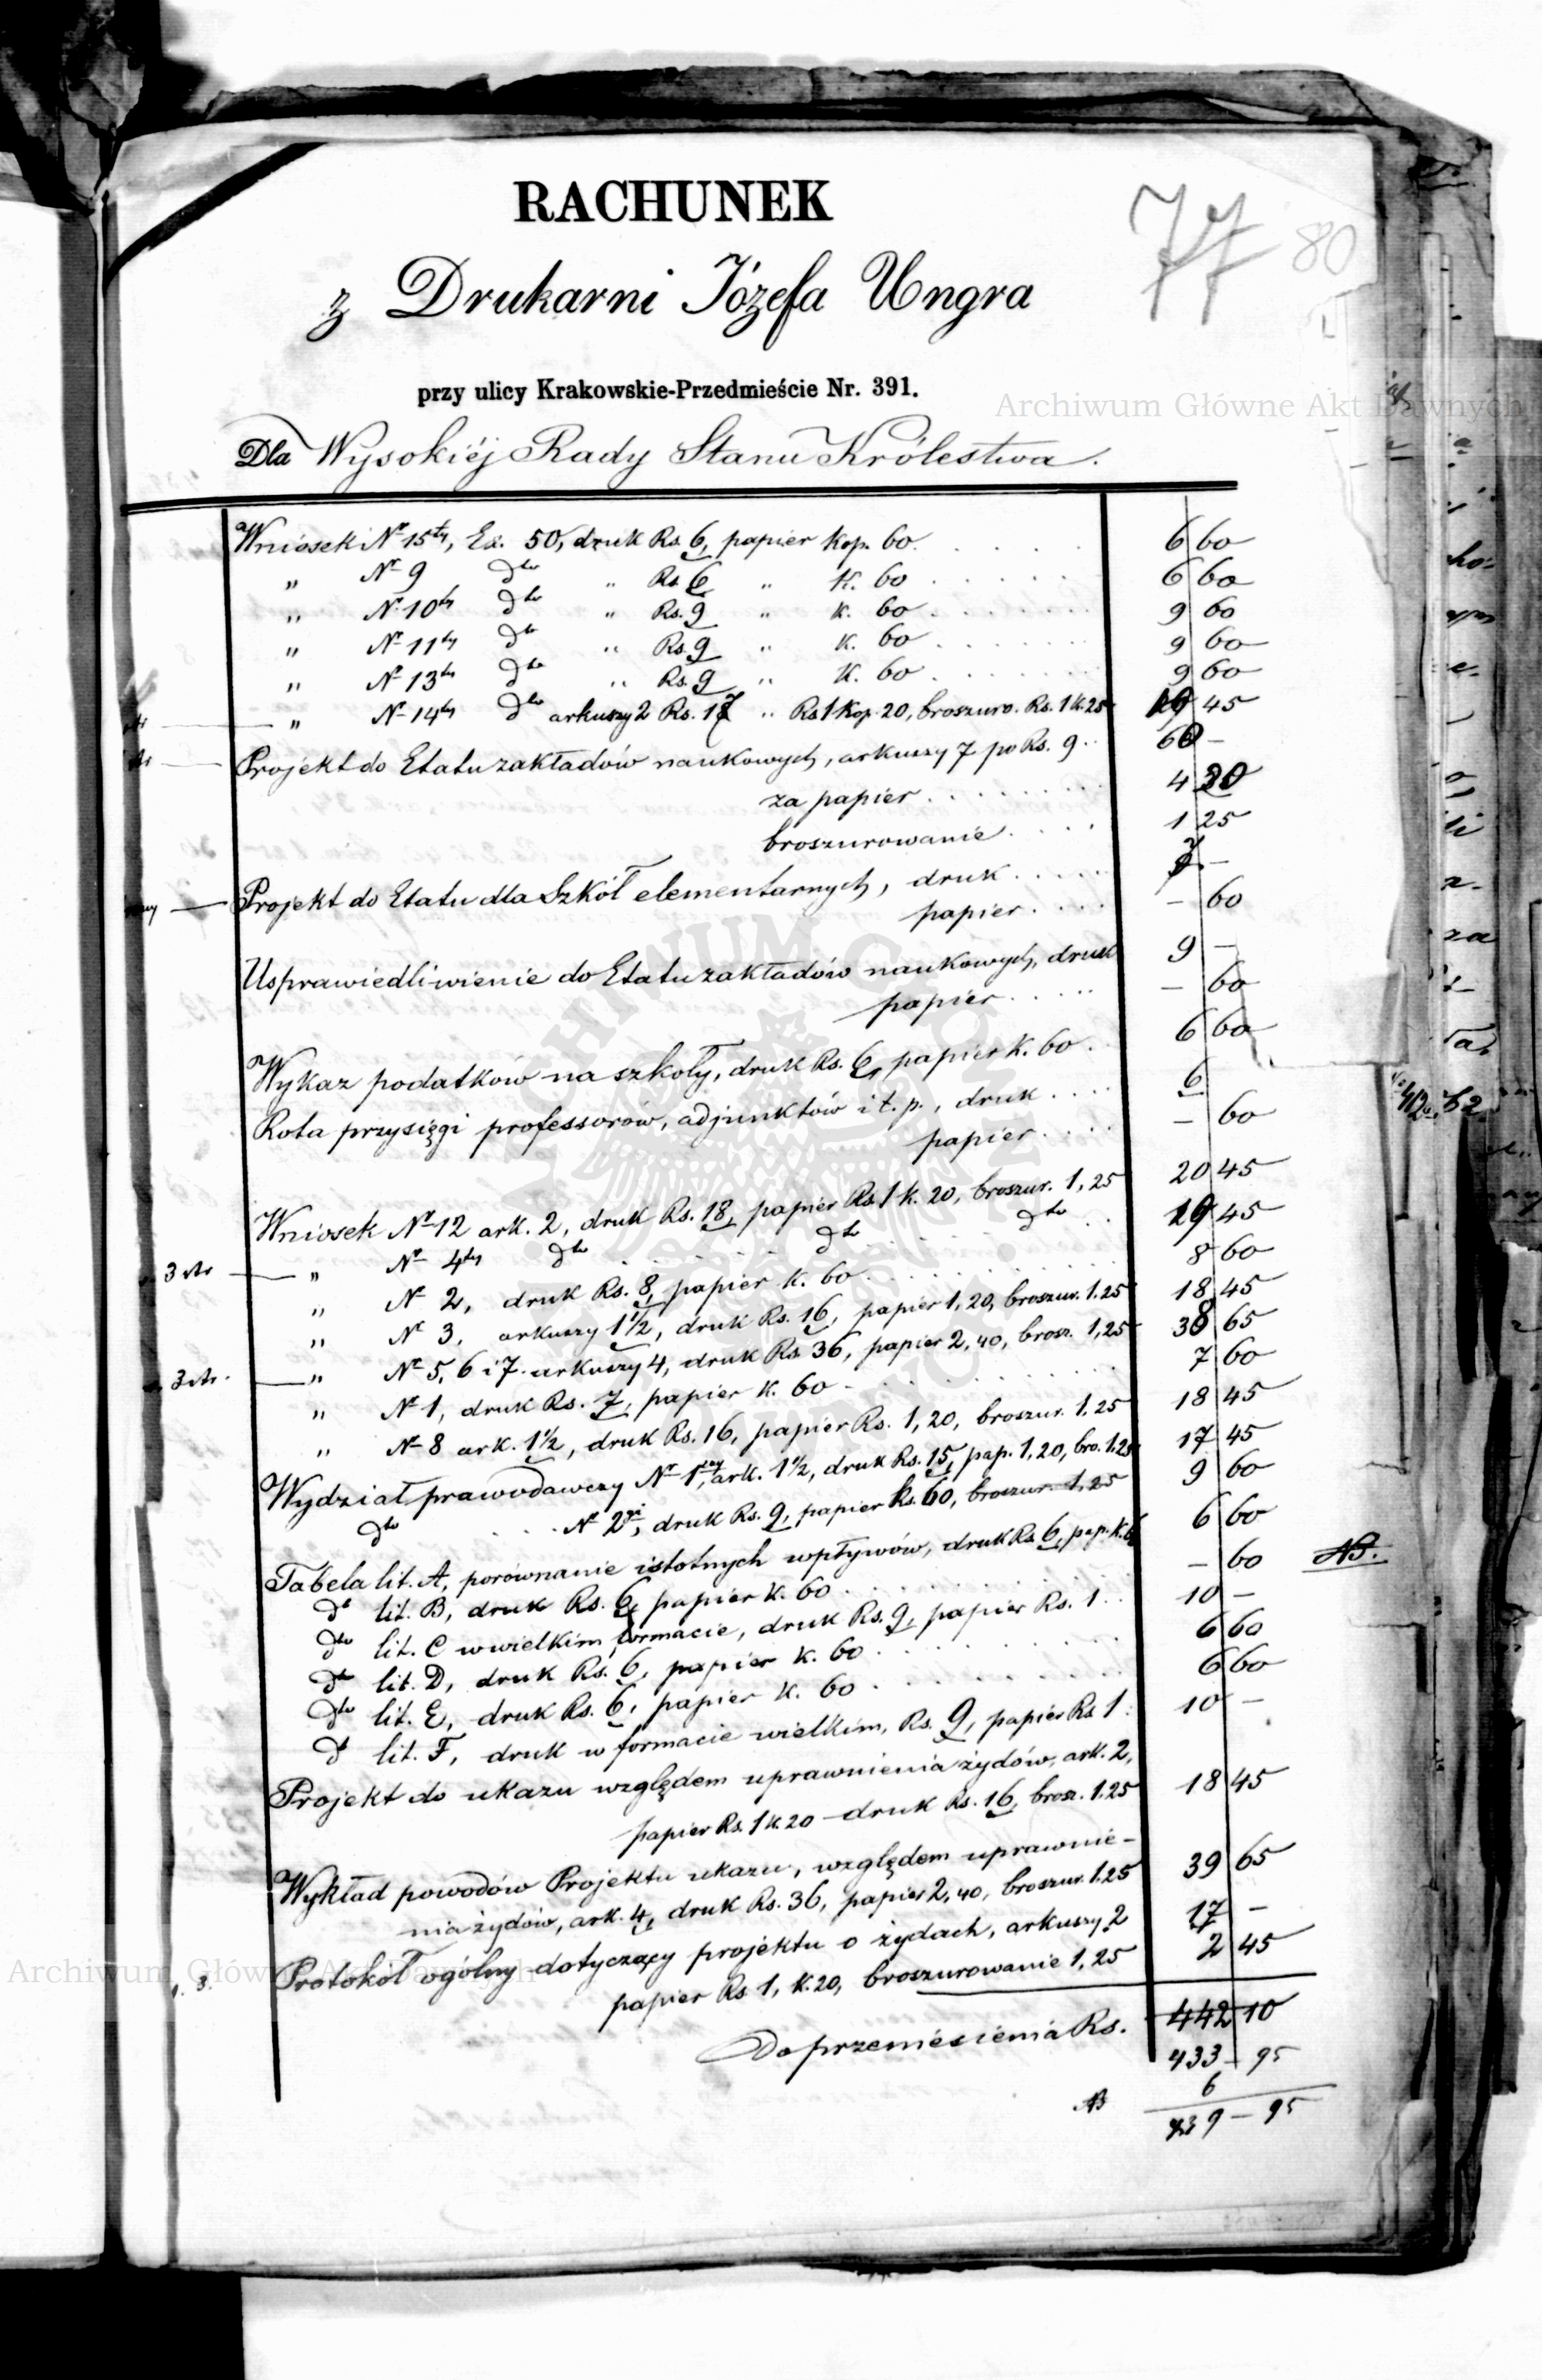 RACHUNEK
77 80
z Drukarni Józefa Ungra
przy ulicy Krakowskie-Przedmieście Nr. 391.
Archiwum Główne Akt Dawnych
Dla Wysokiéj Rady Stanu Królestwa.
Wniosek Nr 15ty, Ex. 50, druk Rs. 6, papier kop. 60. 6 60
" Nr 9 dto " Rs. 6 " K. 60 6 60
" Nr 10ty dto " Rs. 9 " K. 60 9 60
" Nr 11ty dto " Rs. 9 " K. 60 9 60
" Nr 13ty dto " Rs. 9 " K. 60 9 60
" Nr 14ty dto arkuszy 2 Rs. 17 " Rs 1 Kop. 20, broszuro. Rs. 1 K. 25 19 45
Projekt do Etatu zakładów naukowych, arkuszy 7 po Rs. 9 60 –
za papier 4 20
broszurowanie 1 25
Projekt do Etatu dla Szkół elementarnych, druk 7 –
papier – 60
Usprawiedliwienie do Etatu zakładów naukowych, druk 9 –
papier – 60
Wykaz podatków na szkoły, druk Rs. 6, papier K. 60 6 60
Rota przysięgi professorów, adjunktów i t. p., druk 6
papier – 60
Wniosek Nr 12 ark. 2, druk Rs. 18, papier Rs. 1 k. 20, broszur. 1,25 20 45
" Nr 4ty dto dto dto 19 45
" Nr 2, druk Rs. 8, papier K. 60 8 60
" Nr 3, arkuszy 1 1/2, druk Rs. 16, papier 1,20, broszur. 1.25 18 45
" Nr 5, 6 i 7 arkuszy 4, druk Rs. 36, papier 2,40, brosz. 1,25 38 65
" Nr 1, druk Rs. 7, papier K. 60 7 60
" Nr 8 ark. 1 1/2, druk Rs. 16, papier Rs. 1,20, broszur. 1.25 18 45
Wydział prawodawczy Nr 1szy, ark. 1 1/2, druk Rs. 15, pap. 1,20, bro. 1.25 17 45
dto Nr 2gi, druk Rs. 9, papier ks. 60, broszur. 1,25 9 60
Tabela lit. A, porównanie istotnych wpływów, druk Rs 6, pap. K. 60 6 60
dto lit. B, druk Rs. 6, papier K. 60 – 60 NB.
dto lit. C w wielkim formacie, druk Rs. 9, papier Rs. 1 10 –
dto lit. D, druk Rs. 6, papier K. 60 6 60
dto lit. E, druk Rs. 6, papier K. 60 6 60
dto lit. F, druk w formacie wielkim, Rs. 9, papier Rs 1 10 –
Projekt do ukazu względem uprawnienia żydów, ark. 2,
papier Rs. 1 K. 20 – druk Rs. 16, brosz. 1.25 18 45
Wykład powodów Projektu ukazu, względem uprawnie-
nia żydów, ark. 4, druk Rs. 36, papier 2,40, broszur. 1.25 39 65
Protokół ogólny dotyczący projektu o żydach, arkuszy 2 17 –
papier Rs 1, K. 20, broszurowanie 1,25 2 45
Archiwum Główne Akt Dawnych
Do przeniesienia Rs. 442 10
433 – 95
NB 6
439 – 95